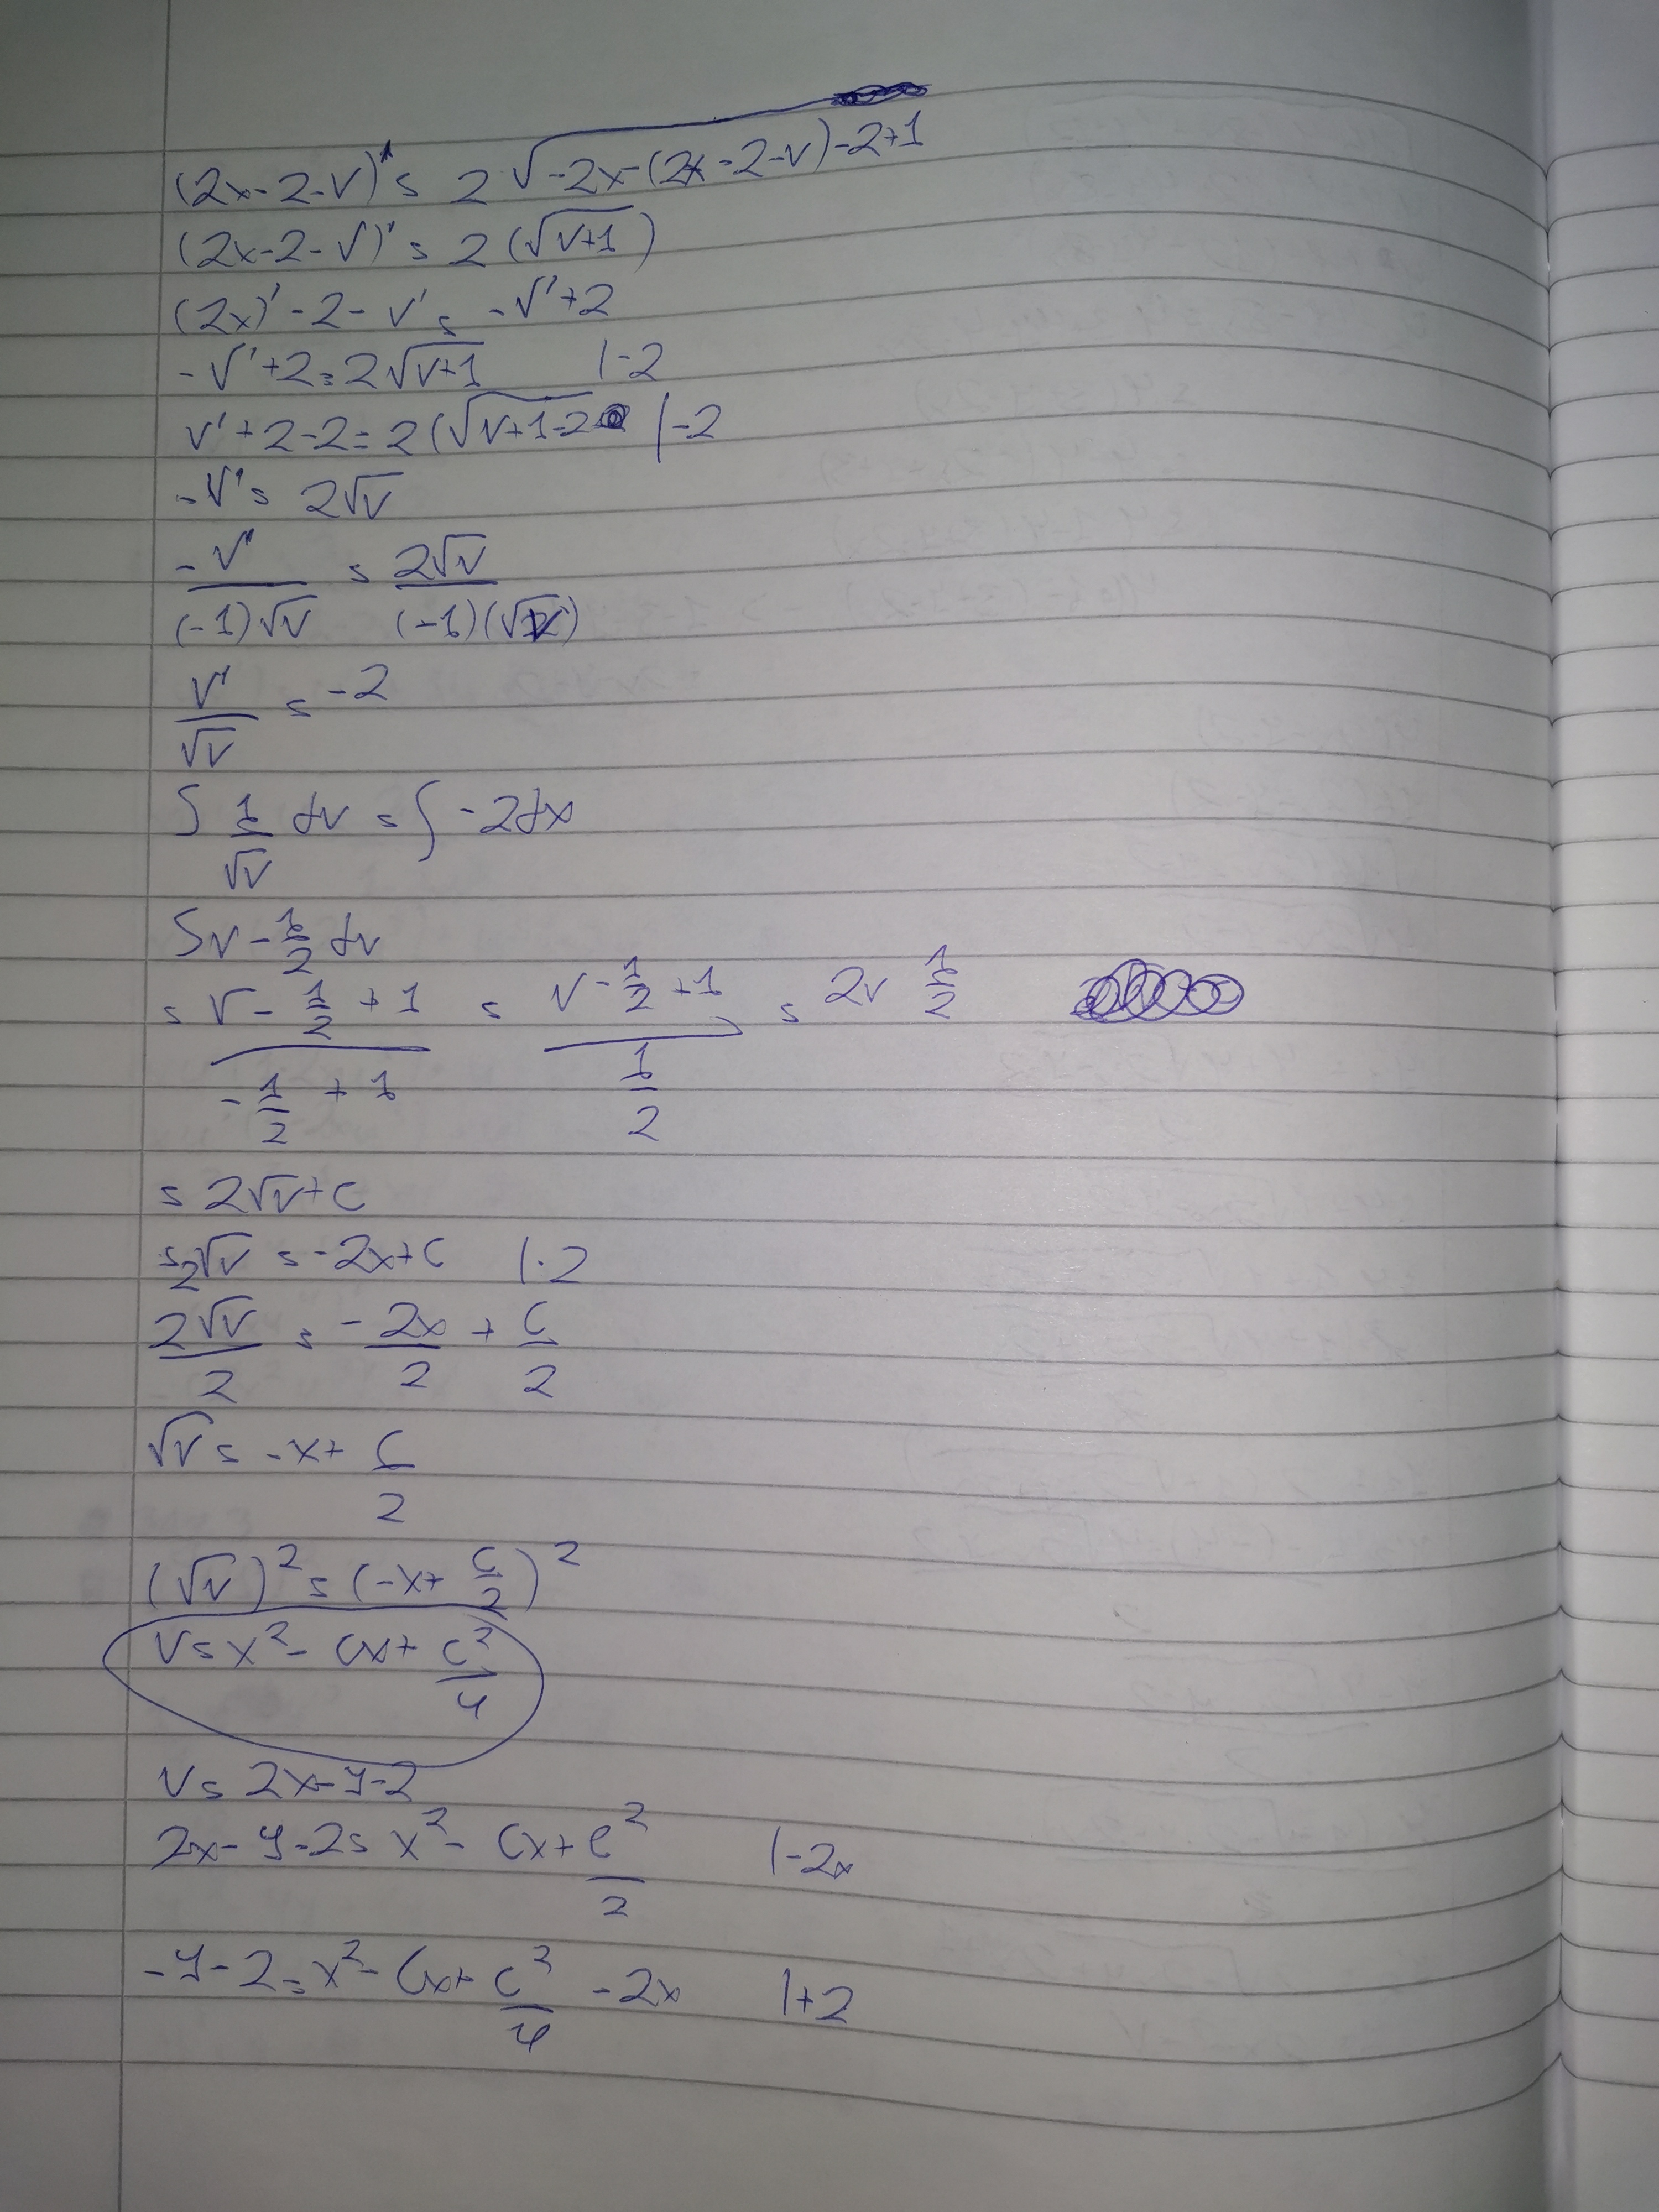 (2x-2-v)' = 2√-2x-(2x-2-v)-2+1
(2x-2-v)' = 2(√v+1)
(2x)'-2-v' = -v'+2
-v'+2=2√v+1 |-2
v'+2-2=2(√v+1-2 |-2
-v' = 2√v
-v'/(-1)√v = 2√v/(-1)(√v)
v'/√v = -2
∫ 1/√v dv = ∫ -2dx
∫v-1/2 dv
= v-1/2+1/-1/2+1 = v-1/2+1/1/2 = 2v 1/2
= 2√v+c
=2√v = -2x+c |·2
2√v/2 = -2x/2 + c/2
√v = -x+ c/2
(√v)² = (-x+ c/2)²
v=x²- cx+ c²/4
v= 2x-y-2
2x-y-2= x²- cx+ c²/2 |-2x
-y-2=x²-cx+ c²/4 -2x |+2